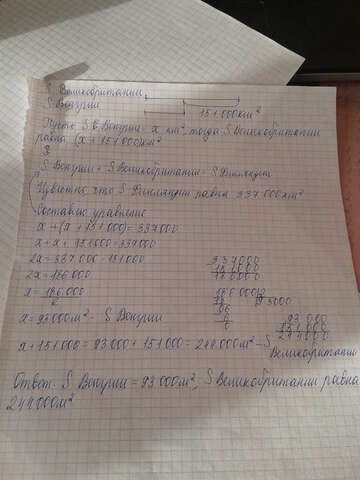 S Великобритании
S Венгрии 151.000км²
Пусть S в Венгрии - x км², тогда S Великобритании
равна (x + 151 000)км²
S Венгрии + S Великобритании = S Финляндии
Известно что S Финляндии равна 337 000км²
Составлю уравнение
x+(x+151000)=337000
x+x+151000=337000
2x=337000-151000
2x=186000
x=186.000
2
x=93000м² - S Венгрии
x+151000=93000+151000=244000м² - S
Великобритании
337000
151000
186000
186000 2
18 93000
06
6
0
93 000
151 000
244 000
Ответ: S Венгрии = 93 000м², S Великобритании равна
244 000м²